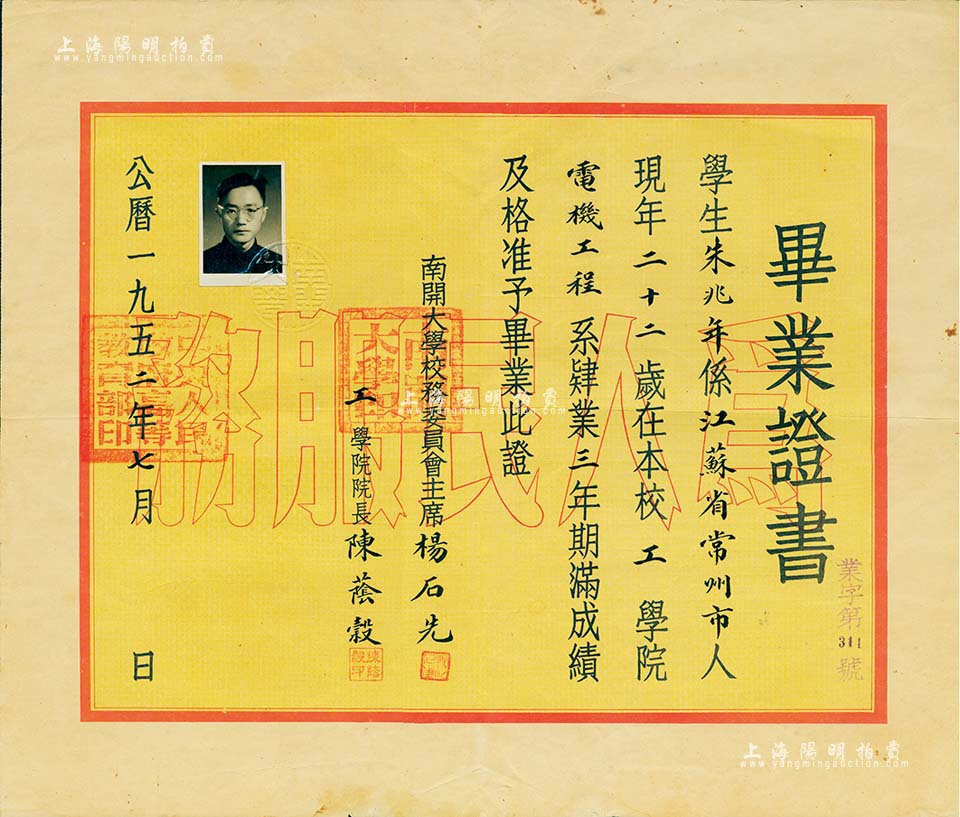 上海陽明拍賣
www.yangmingauction.com
畢業證書
學生朱兆年係江蘇省常州市人
現年二十二歲在本校工學院
電機工程系肄業三年期滿成績
及格准予畢業此證
南開大學校務委員會主席楊石先
工學院院長陳蔭穀
公曆一九五二年七月 日
業字第311號
為人民服務
上海陽明拍賣
www.yangmingauction.com
上海陽明拍賣
www.yangmingauction.com